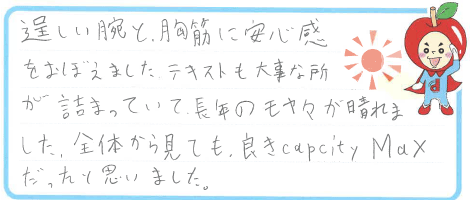 逞しい腕と、胸筋に安心感
をおぼえました、テキストも大事な所
が詰まっていて、長年のモヤモヤが晴れま
した、全体から見ても、良きcapcity Max
だったと思いました。
d